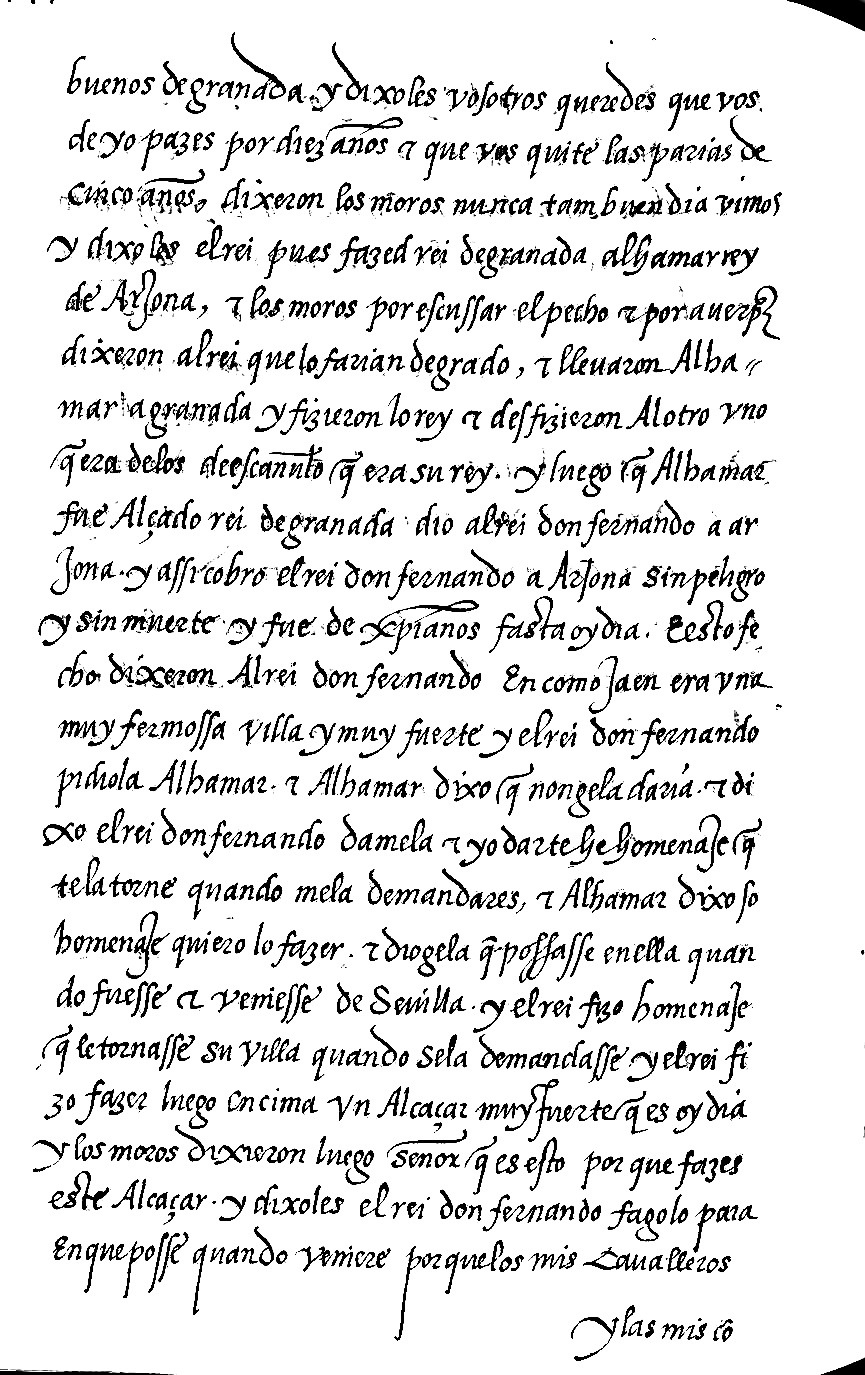 buenos de granada y dixoles vosotros queredes que vos
de yo pazes por diez años τ que vos quite las parias de
cinco años, dixeron los moros nunca tam buen dia vimos
y dixoles el rei pues fazed rei de granada alhamar rey
de Arjona, τ los moros por escussar el pecho τ por aver pz
dixeron al rei que lo farian de grado, τ llevaron Alha〃
mar a granada y fizieron lo rey τ desfizieron Al otro vno
q̃ era de los de escanuto q̃ era su rey. y luego q̃ Alhamar
fue Alçado rei de granada dio al rei don fernando a ar
Jona. y assi cobro el rei don fernando a Arjona sin peligro
y sin muerte y fue de xp̃ianos fasta oy dia. E esto fe
cho dixeron Al rei don fernando En como Jaen era vna
muy fermossa villa y muy fuerte y el rei don fernando
pidiola Alhamar. τ Alhamar dixo q̃ non gela daria. τ di
xo el rei don fernando damela τ yo darte he homenaje q̃
te la torne quando me la demandares, τ Alhamar dixo so
homenaje quiero lo fazer. τ diogela q̃ possasse en ella quan
do fuesse τ veniesse de Sevilla. y el rei fizo homenaje
q̃ le tornasse su villa quando se la demandasse y el rei fi
zo fazer luego encima vn Alcaçar muy fuerte q̃ es oy dia
y los moros dixieron luego señor q̃ es esto por que fazes
este Alcaçar. y dixoles el rei don fernando fagolo para
En que posse quando veniere por que los mis Cavalleros
y las mis cõ